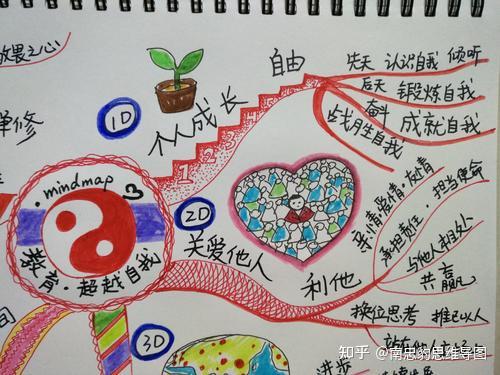 放畏之心
自由
先天 认识自我 倾听
后天 锻炼自我
奋斗 成就自我
战胜自我
1D
个人成长
单修
1 2 3 4
mindmap
教育·超越自我
2D
关爱他人
利他
亲情·爱情·友情
承担责任·担当使命
与他人相处
共赢
换位思考 推己以人
站在他人
3D
间
进步
知乎 @南忠豹思维导图